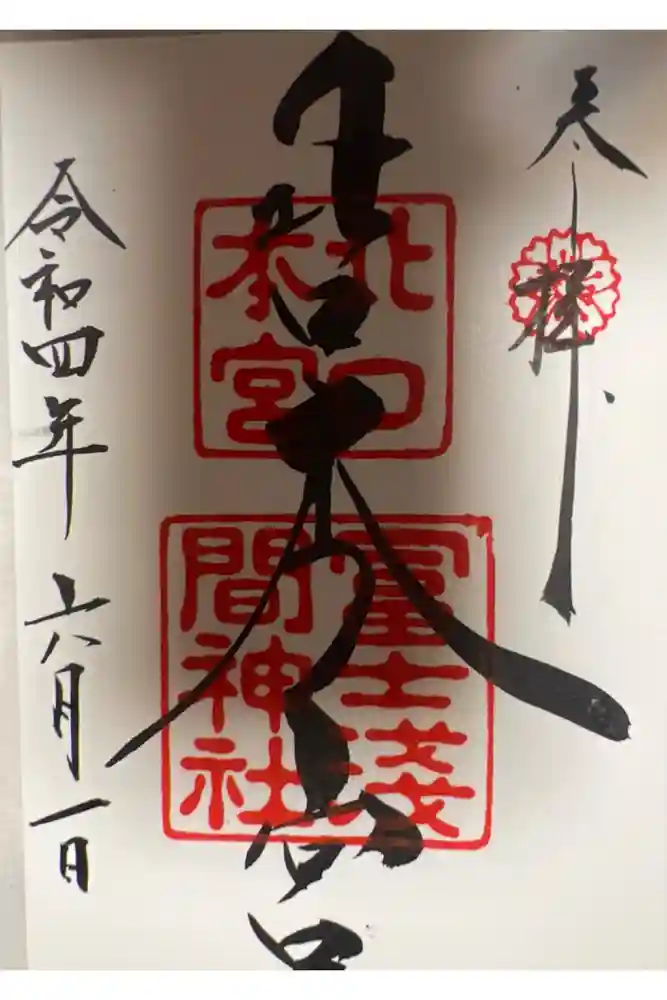 奉拝
北口本宮
北口
本宮
冨士淺
間神社
令和四年六月一日